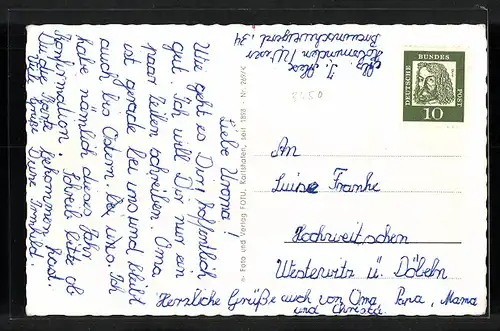 Liebe Uroma!
Wie geht es Dir? Hoffentlich
gut. Ich will Dir nur ein
paar Zeilen schreiben. Oma
ist gerade bei uns und bleibt
auch bis Ostern. Bei uns. Ich
habe nämlich dieses Jahr
Konfirmation. Schreib bitte ob
Du die Karte bekommen hast.
Viele Grüße
Deine Irmhild.
Herzliche Grüße auch von Oma, Papa, Mama
und Christa.
Foto und Verlag FOTU, Karlshafen, seit 1898 - Nr.
Abs. J.
Holzminden
34
DEUTSCHE BUNDESPOST
10
An
Luise Franke
Hochweitschen
Westewitz ü. Döbeln